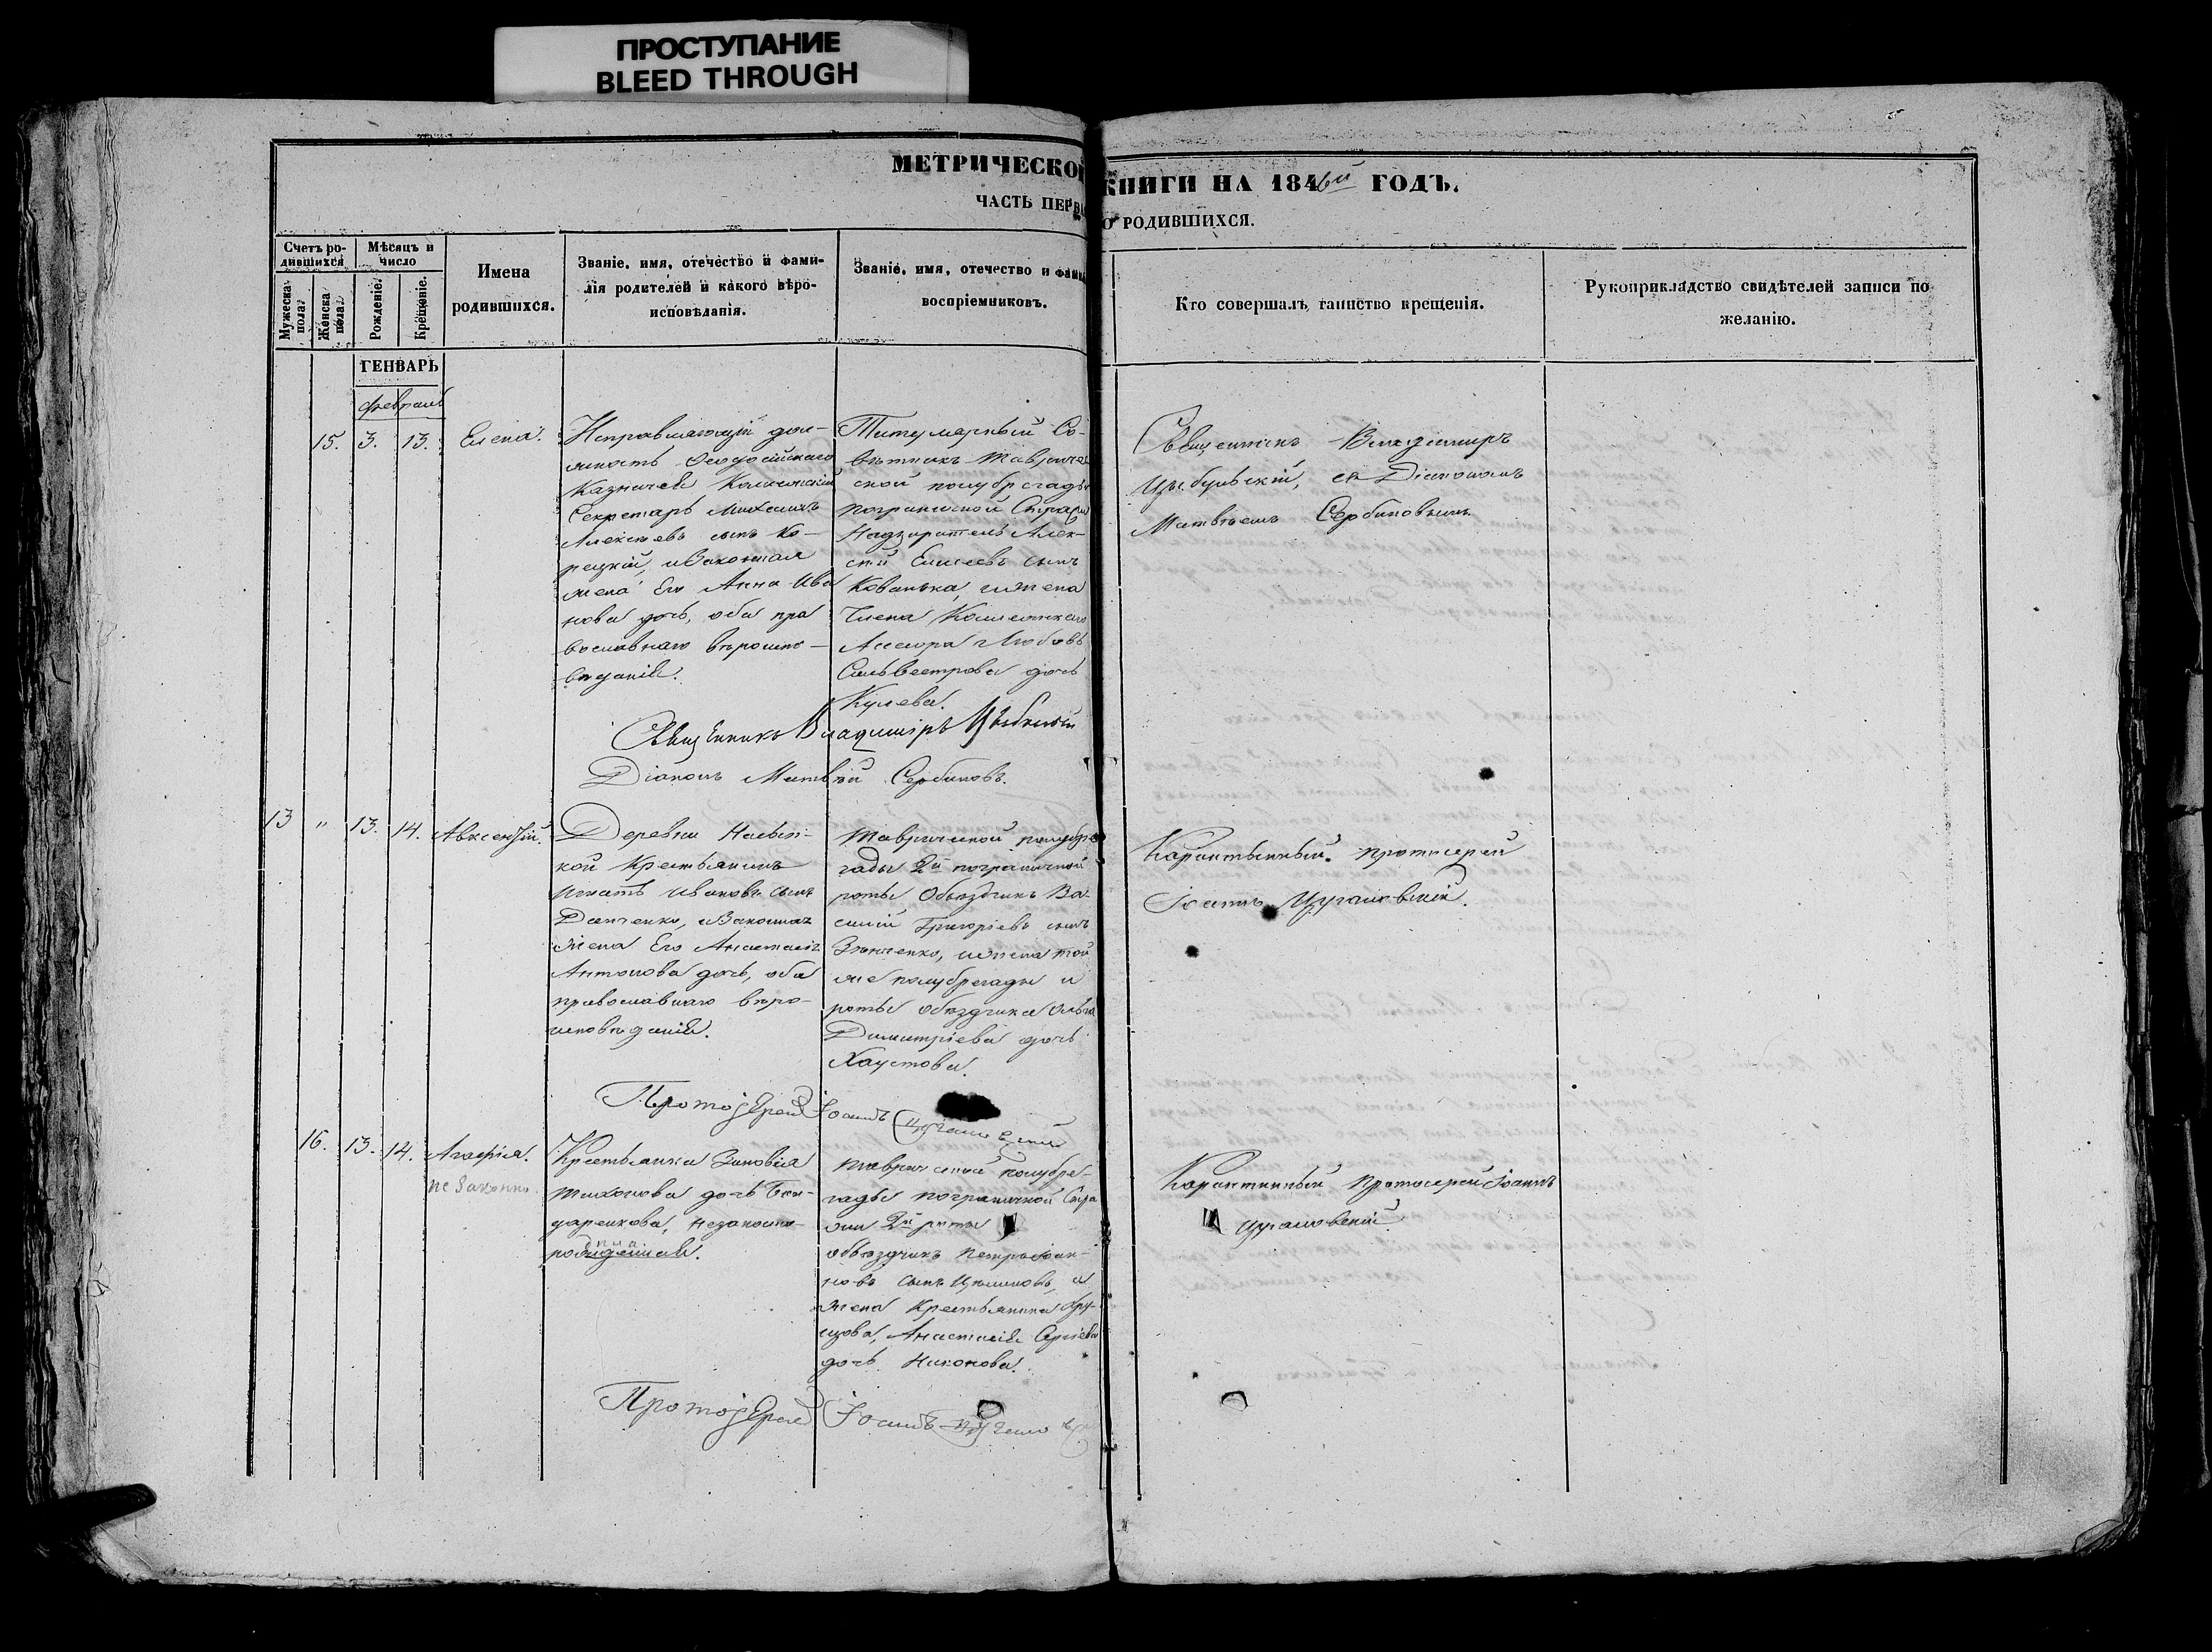 ПРОСТУПАНИЕ
BLEED THROUGH
МЕТРИЧЕСКОЙ КНИГИ НА 1846й ГОДЪ.
ЧАСТЬ ПЕРВ О РОДИВШИХСЯ.
Счетъ ро-
дившихся
Мужеска
пола.
Женска
пола.
Мѣсяцъ и
число
Рожденіе.
Крещеніе.
Имена
родившихся.
Званіе, имя, отечество и фами-
лія родителей и какого вѣро-
исповѣданія.
Званіе, имя, отечество и фами
воспріемниковъ.
Кто совершалъ таинство крещенія.
Рукоприкладство свидѣтелей записи по
желанію.
ГЕНВАРЬ
февраль
15. 3. 13. Елена.
Исправляющій дол-
жность Ѳеодосійскаго
Казначея Коллежскій
Секретарь Михаилъ
Алексѣевъ сынъ Ко-
рецкій, и Законная
жена Его Анна Ива
нова дочь, оба пра
вославнаго вѣроиспо-
вѣданія.
Титулярный Со-
вѣтникъ Тавриче
ской полубригады
пограничной Стражи
Надзиратель Алек-
сѣй Елисеевъ сынъ
Кованька, и жена
Члена Коллежскаго
Асесора Любовь
Сильвестрова дочь
Кулева.
Священникъ Владимиръ
Цыбульскій, съ Діакономъ
Матвѣемъ Сербиновымъ.
Священникъ Владиміръ Цыбульскій
Діаконъ Матвѣй Сербиновъ.
13 " 13. 14. Авксентій.
Деревни Насып-
кой Крестьянинъ
Игнатъ Ивановъ сынъ
Демченко, и Законная
жена Его Анастасія
Антонова дочь, оба
православнаго вѣро-
исповѣданія.
Таврической полубри
гады 2й пограничной
роты Объѣздчикъ Ва-
силій Григорьевъ сынъ
и жена той
же полубригады и
роты объѣздчика Ольга
Димитріева дочь
Хаустова.
Карантинный протоіерей
Іоаннъ
Протоіерей Іоаннъ
16. 13. 14. Агафія.
незаконно
Крестьянка Зиновія
Тихонова дочь Бон-
даренкова, незаконно-
Таврической полубри-
гады пограничной Стра
жи 2й роты
объѣздчикъ Петръ Іоан-
новъ сынъ и
жена Крестьянина
Анастасія Сергіева
дочь Никонова.
Карантинный Протоіерей Іоаннъ
Протоіерей Іоаннъ